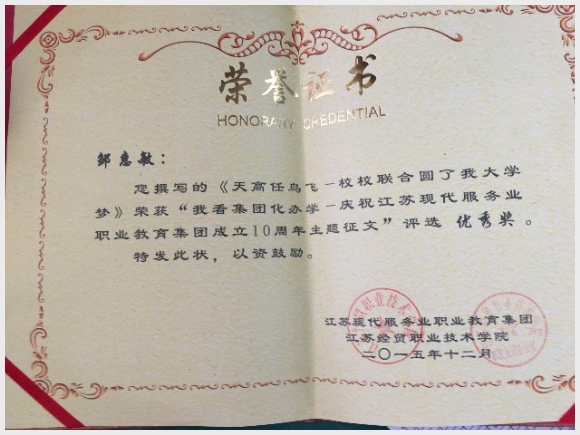 荣誉证书
HONORARY CREDENTIAL
邹惠敏：
您撰写的《天高任鸟飞－校校联合圆了我大学
梦》荣获“我看集团化办学－庆祝江苏现代服务业
职业教育集团成立10周年主题征文”评选 优秀奖 。
特发此状，以资鼓励。
江苏现代服务业职业教育集团
江苏经贸职业技术学院
二〇一五年十二月